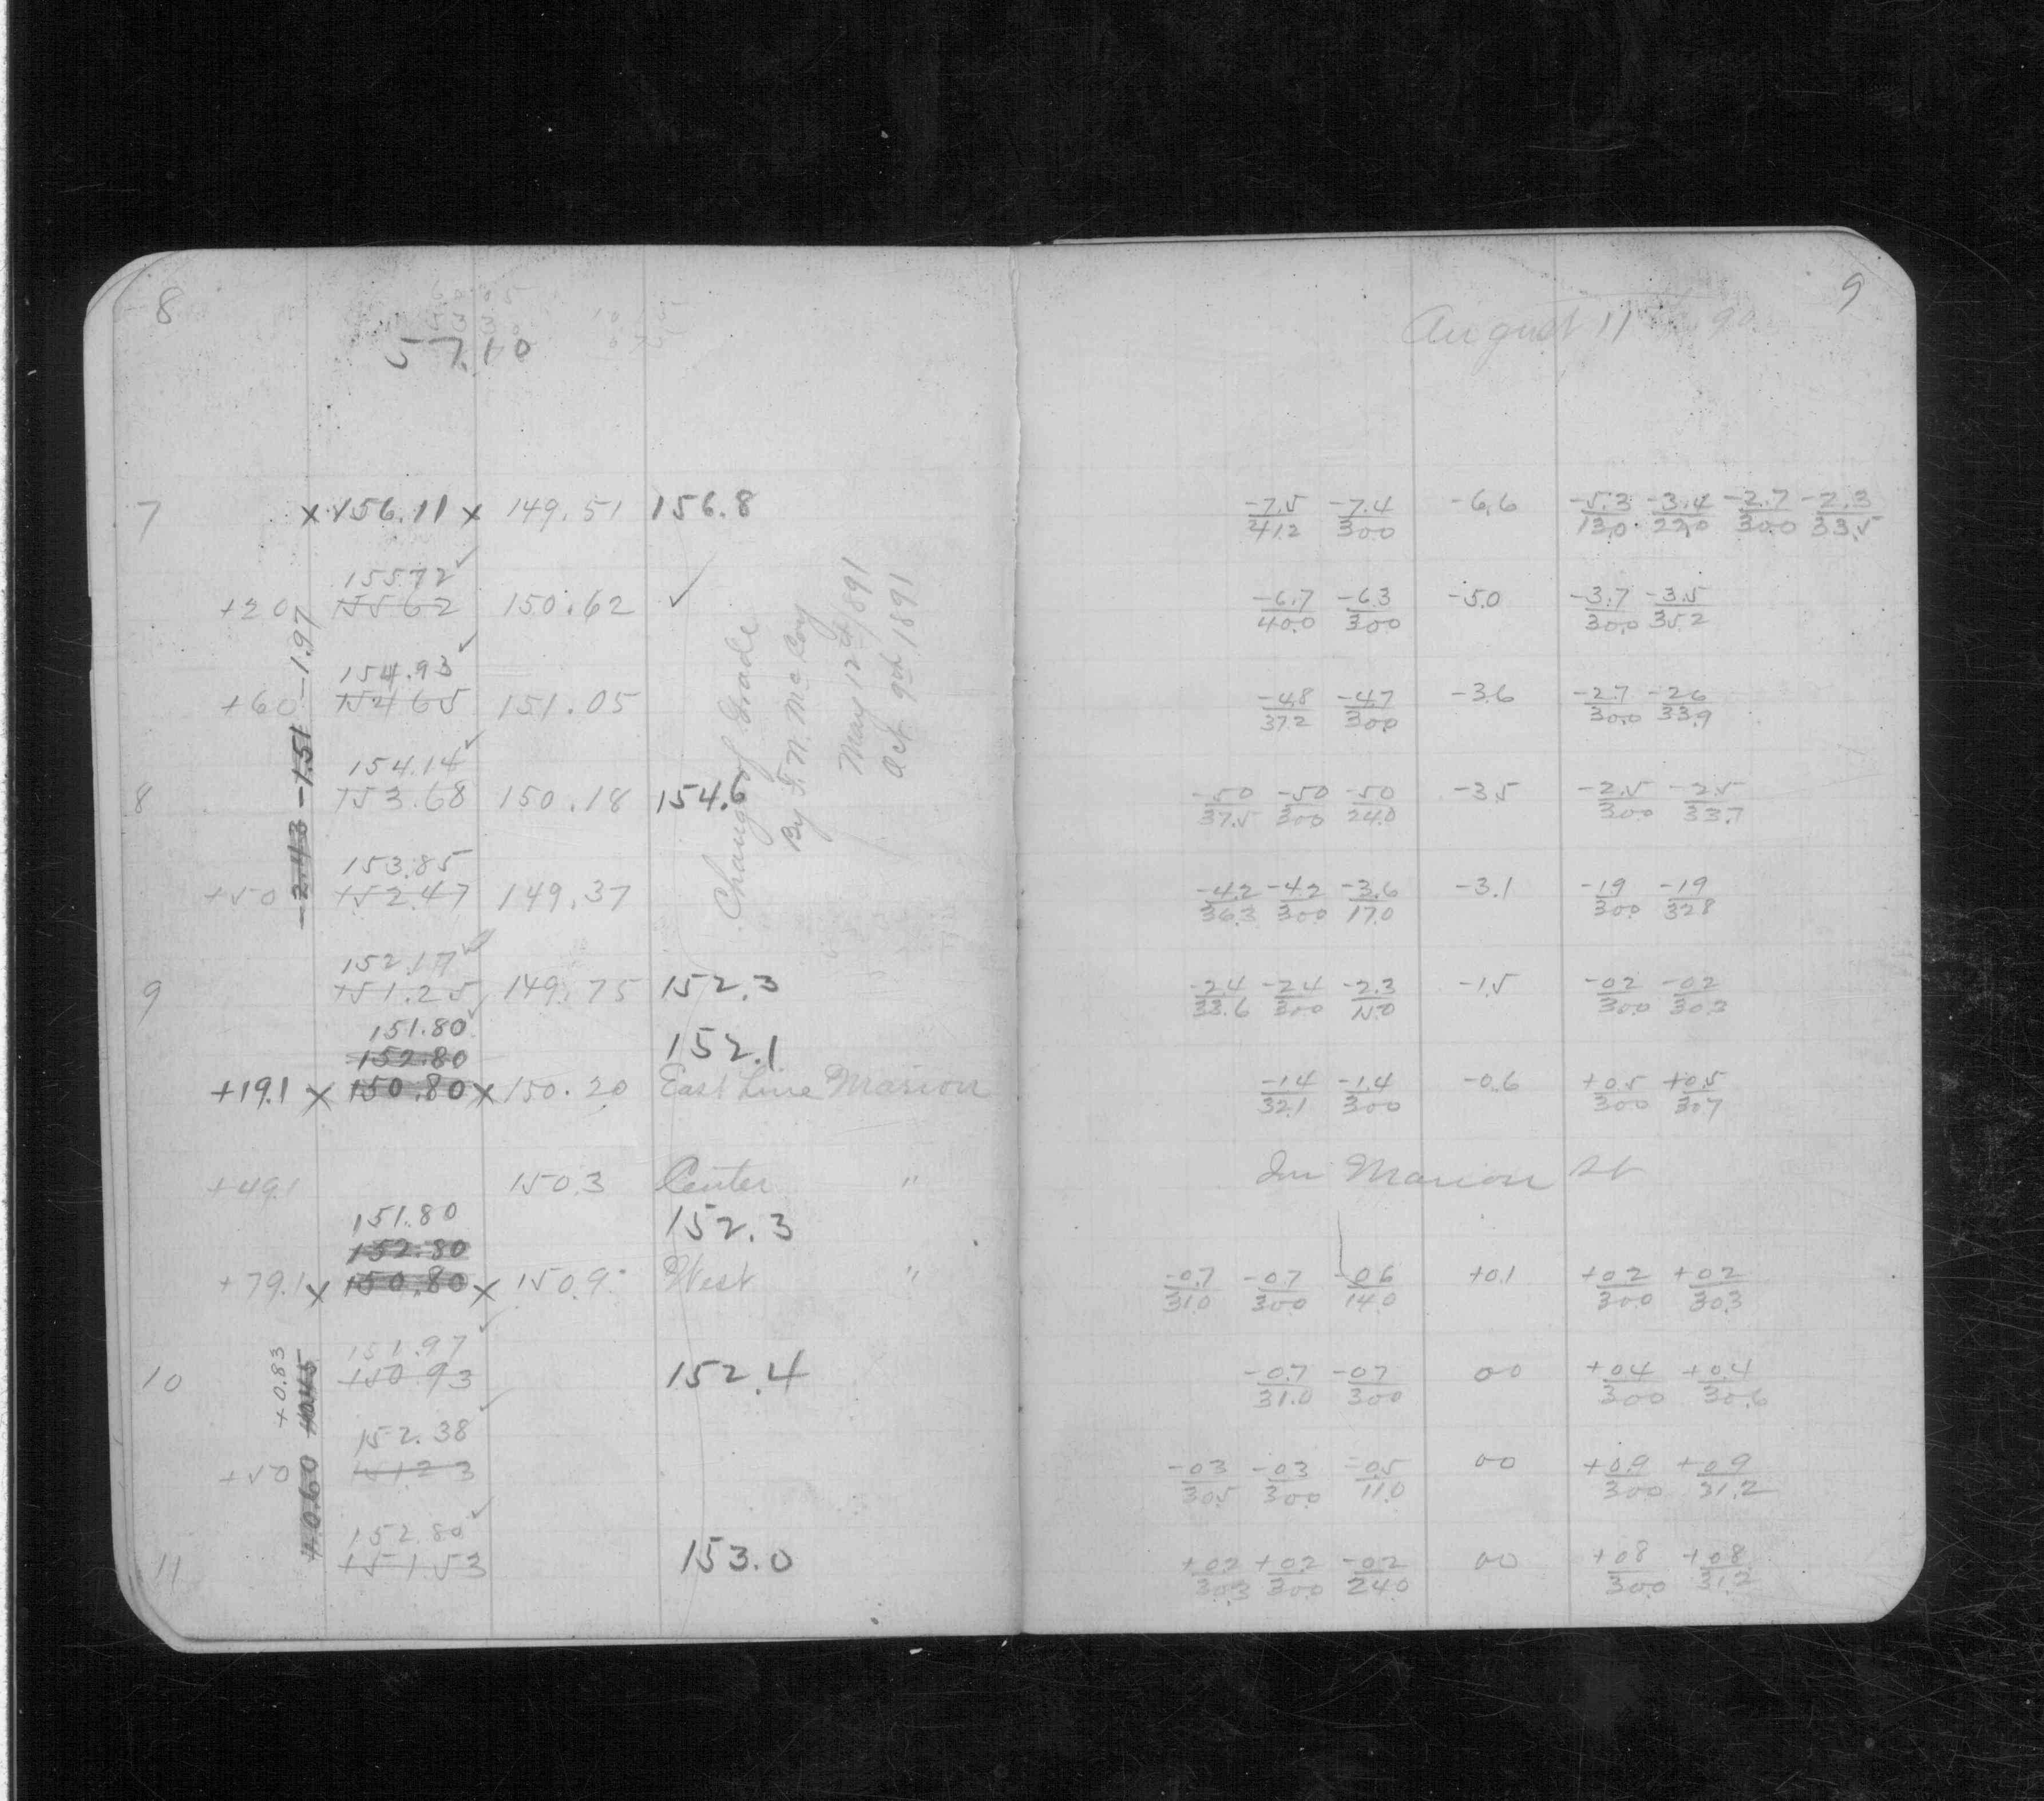 8
57.10
7 x 156.11 x 149.51 156.8
155.72 ✓
+20 155.62 150.62 ✓
-1.97
154.93 ✓
+60 154.65 151.05
-2.43 -1.51
154.14 ✓
8 153.68 150.18 154.6
153.85
+50 152.47 149.37
Change of Grade
By F. N. McCoy
May 12th 1891
Oct 9th 1891
152.17 ✓
9 151.25 149.75 152.3
151.80 ✓
152.80 152.1
+19.1 x 150.80 x 150.20 East Line Marion
+49.1 150.3 Center "
151.80 152.3
152.80
+79.1 x 150.80 x 150.9 West "
151.97 ✓
10 150.93 152.4
+0.83
+0.45
152.38 ✓
+50 151.23
+0.60
152.80 ✓
11 151.53 153.0
9
August 11 90
-7.5/41.2 -7.4/30.0 -6.6 -5.3/13.0 -3.4/22.0 -2.7/30.0 -2.3/33.5
-6.7/40.0 -6.3/30.0 -5.0 -3.7/30.0 -3.5/35.2
-4.8/37.2 -4.7/30.0 -3.6 -2.7/30.0 -2.6/33.9
-5.0/37.5 -5.0/30.0 -5.0/24.0 -3.5 -2.5/30.0 -2.5/33.7
-4.2/36.3 -4.2/30.0 -3.6/17.0 -3.1 -1.9/30.0 -1.9/32.8
-2.4/33.6 -2.4/30.0 -2.3/15.0 -1.5 -0.2/30.0 -0.2/30.3
-1.4/32.1 -1.4/30.0 -0.6 +0.5/30.0 +0.5/30.7
In Marion St
-0.7/31.0 -0.7/30.0 -0.6/14.0 +0.1 +0.2/30.0 +0.2/30.3
-0.7/31.0 -0.7/30.0 0.0 +0.4/30.0 +0.4/30.6
-0.3/30.5 -0.3/30.0 -0.5/11.0 0.0 +0.9/30.0 +0.9/31.2
+0.2/30.3 +0.2/30.0 -0.2/24.0 0.0 +0.8/30.0 +0.8/31.2